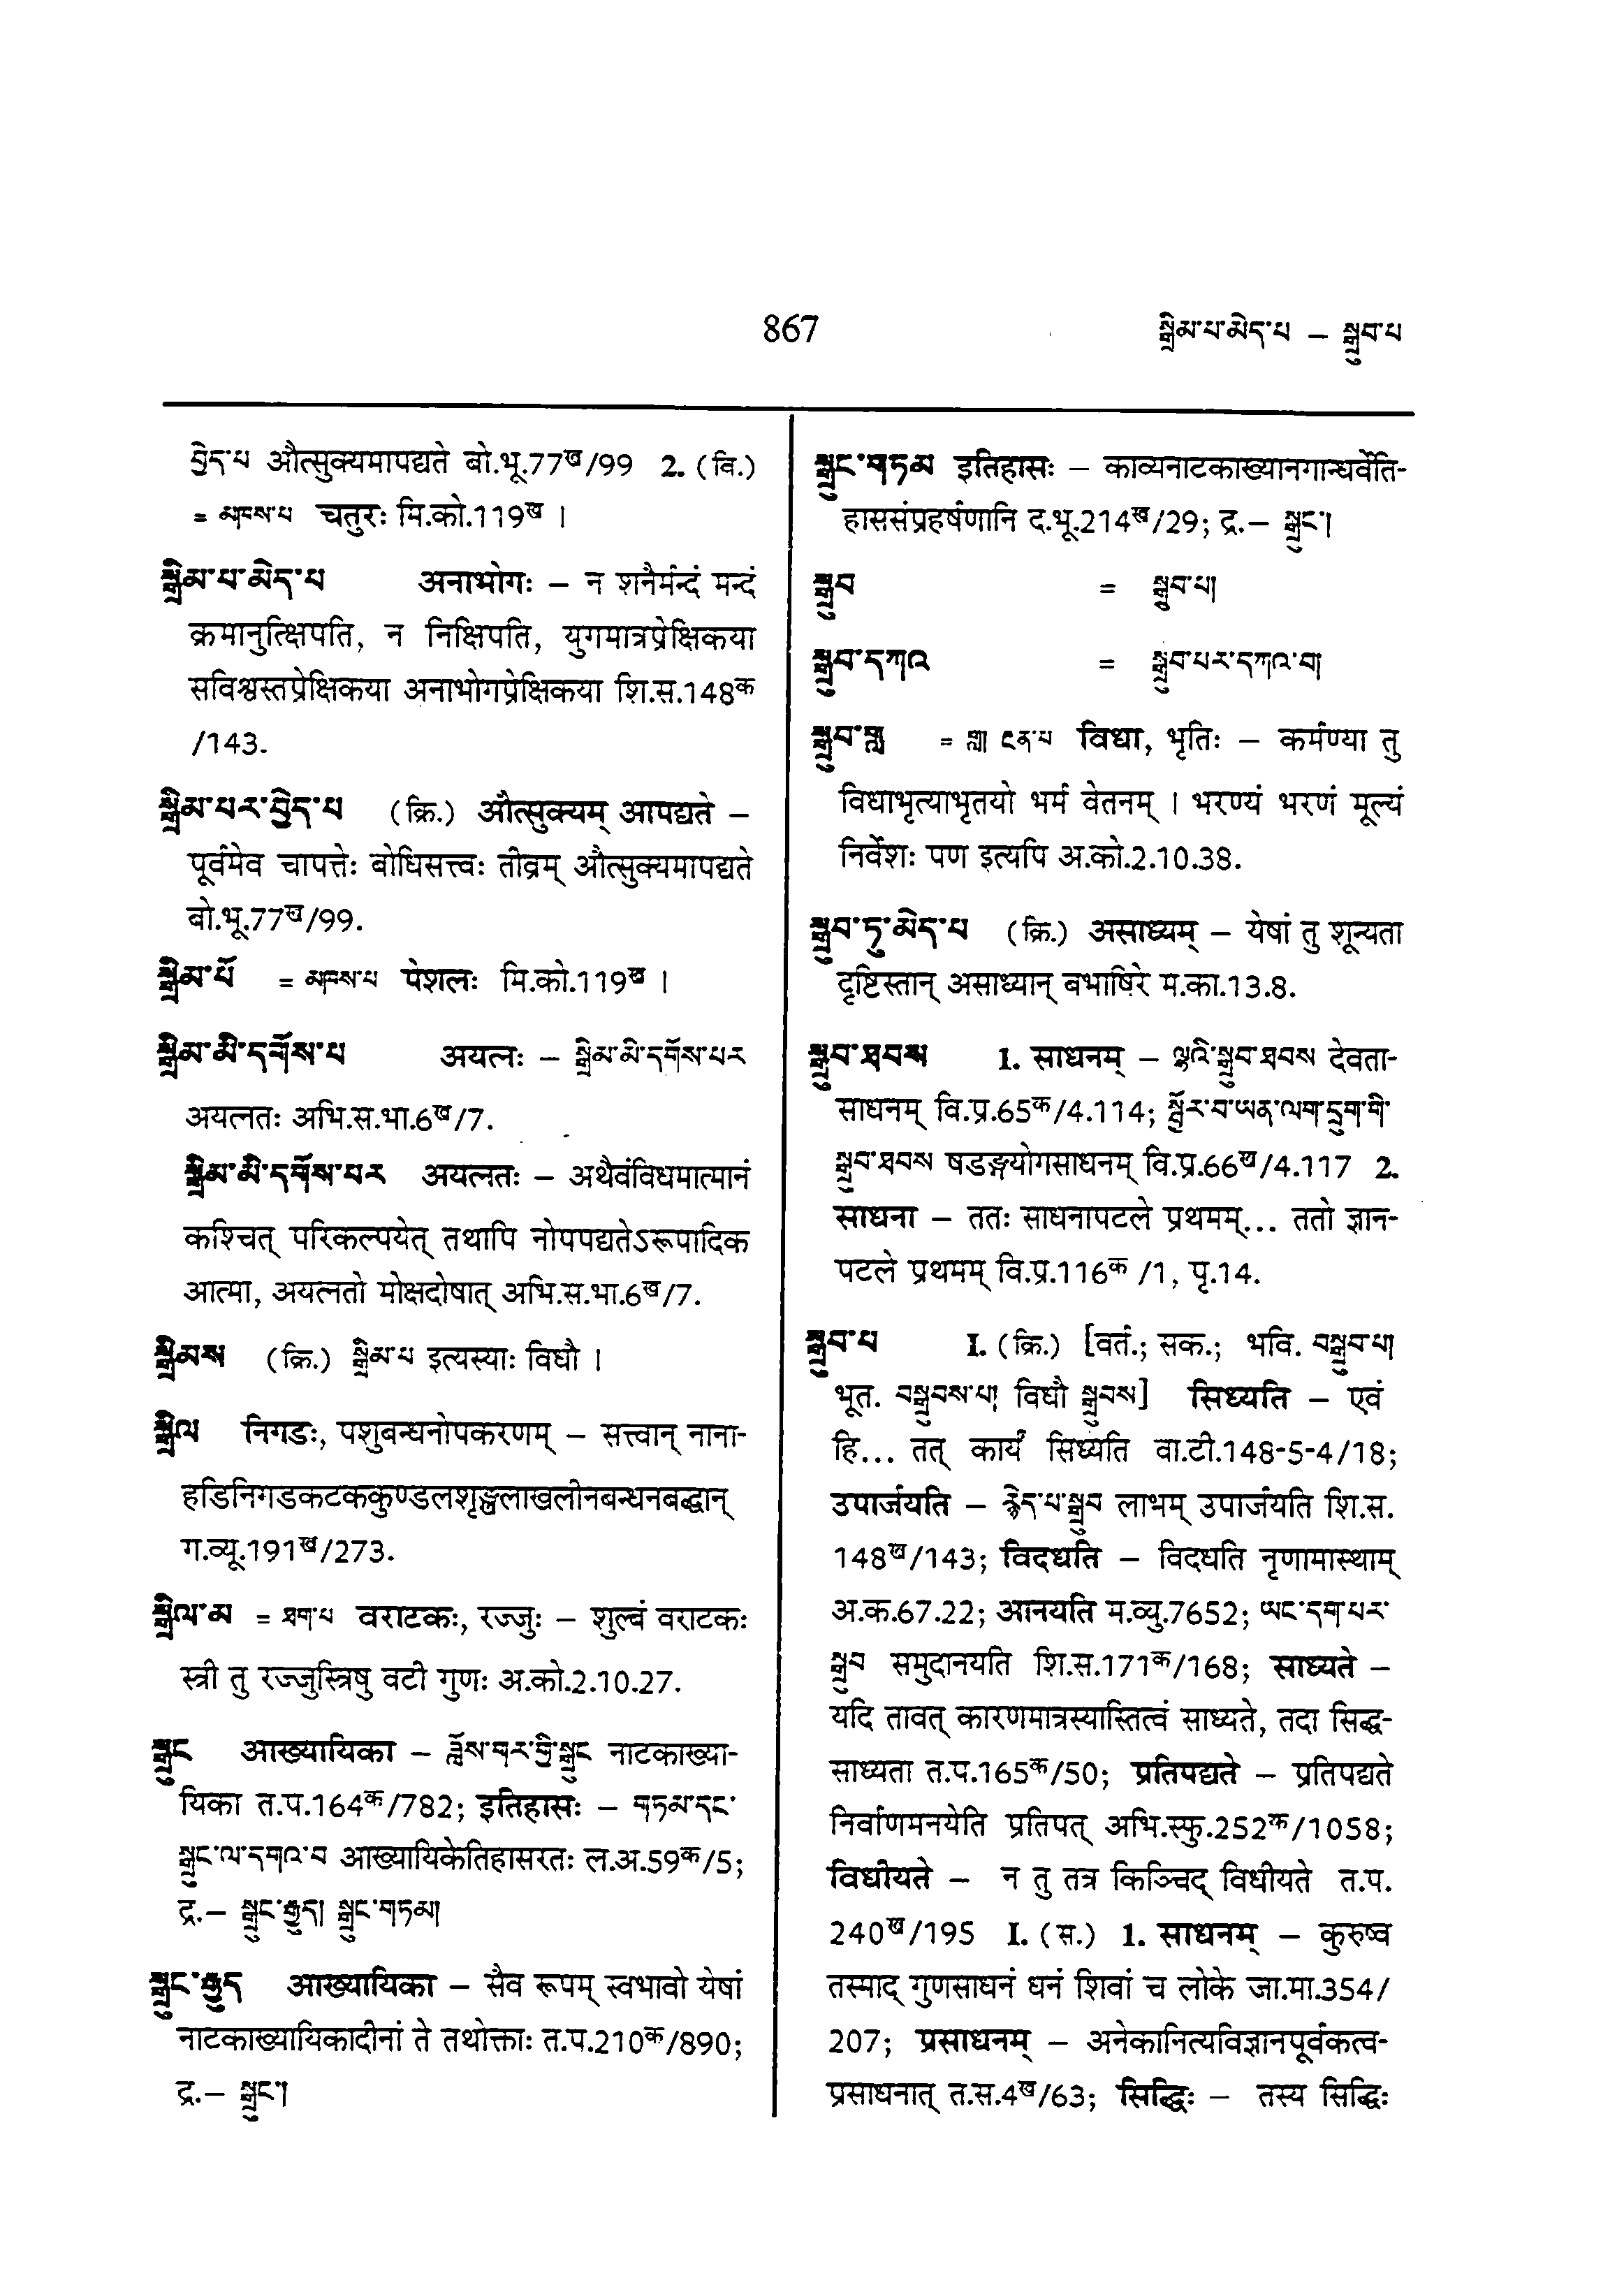 867
སྒྲིམ་པ་མེད་པ – སྒྲུབ་པ
བྱེད་པ औत्सुक्यमापद्यते बो.भू.77ख/99 2. (वि.)
= མཁས་པ चतुरः मि.को.119ख ।
སྒྲིམ་པ་མེད་པ अनाभोगः – न शनैर्मन्दं मन्दं
क्रमानुत्क्षिपति, न निक्षिपति, युगमात्रप्रेक्षिकया
सविश्वस्तप्रेक्षिकया अनाभोगप्रेक्षिकया शि.स.148क
/143.
སྒྲིམ་པར་བྱེད་པ (क्रि.) औत्सुक्यम् आपद्यते –
पूर्वमेव चापत्तेः बोधिसत्त्वः तीव्रम् औत्सुक्यमापद्यते
बो.भू.77ख/99.
སྒྲིམ་པོ = མཁས་པ पेशलः मि.को.119ख ।
སྒྲིམ་མི་དགོས་པ अयत्नः – སྒྲིམ་མི་དགོས་པར
अयत्नतः अभि.स.भा.6ख/7.
སྒྲིམ་མི་དགོས་པར अयत्नतः – अथैवंविधमात्मानं
कश्चित् परिकल्पयेत् तथापि नोपपद्यतेऽरूपादिक
आत्मा, अयत्नतो मोक्षदोषात् अभि.स.भा.6ख/7.
སྒྲིམས (क्रि.) སྒྲིམ་པ इत्यस्याः विधौ ।
སྒྲིལ निगडः, पशुबन्धनोपकरणम् – सत्त्वान् नाना-
हडिनिगडकटककुण्डलशृङ्खलाखलीनबन्धनबद्धान्
ग.व्यू.191ख/273.
སྒྲིལ་མ = ཐག་པ वराटकः, रज्जुः – शुल्वं वराटकः
स्त्री तु रज्जुस्त्रिषु वटी गुणः अ.को.2.10.27.
སྒྲུང आख्यायिका – ཟློས་གར་གྱི་སྒྲུང नाटकाख्या-
यिका त.प.164क/782; इतिहासः – གཏམ་དང་
སྒྲུང་ལ་དགའ་བ आख्यायिकेतिहासरतः ल.अ.59क/5;
द्र.– སྒྲུང་རྒྱུད། སྒྲུང་གཏམ།
སྒྲུང་རྒྱུད आख्यायिका – सैव रूपम् स्वभावो येषां
नाटकाख्यायिकादीनां ते तथोक्ताः त.प.210क/890;
द्र.– སྒྲུང་།
སྒྲུང་གཏམ इतिहासः – काव्यनाटकाख्यानगान्धर्वेति-
हाससंप्रहर्षणानि द.भू.214ख/29; द्र.– སྒྲུང་།
སྒྲུབ = སྒྲུབ་པ།
སྒྲུབ་དཀའ = སྒྲུབ་པར་དཀའ་བ།
སྒྲུབ་གླ = གླ། ངན་པ विधा, भृतिः – कर्मण्या तु
विधाभृत्याभृतयो भर्म वेतनम् । भरण्यं भरणं मूल्यं
निर्वेशः पण इत्यपि अ.को.2.10.38.
སྒྲུབ་ཏུ་མེད་པ (क्रि.) असाध्यम् – येषां तु शून्यता
दृष्टिस्तान् असाध्यान् बभाषिरे म.का.13.8.
སྒྲུབ་ཐབས 1. साधनम् – ལྷའི་སྒྲུབ་ཐབས देवता-
साधनम् वि.प्र.65क/4.114; སྦྱོར་བ་ཡན་ལག་དྲུག་གི་
སྒྲུབ་ཐབས षडङ्गयोगसाधनम् वि.प्र.66ख/4.117 2.
साधना – ततः साधनापटले प्रथमम्... ततो ज्ञान-
पटले प्रथमम् वि.प्र.116क /1, पृ.14.
སྒྲུབ་པ I. (क्रि.) [वर्त.; सक.; भवि. བསྒྲུབ་པ།
भूत. བསྒྲུབས་པ། विधौ སྒྲུབས] सिध्यति – एवं
हि... तत् कार्यं सिध्यति वा.टी.148-5-4/18;
उपार्जयति – རྙེད་པ་སྒྲུབ लाभम् उपार्जयति शि.स.
148ख/143; विदधति – विदधति नृणामास्थाम्
अ.क.67.22; आनयति म.व्यु.7652; ཡང་དག་པར་
སྒྲུབ समुदानयति शि.स.171क/168; साध्यते –
यदि तावत् कारणमात्रस्यास्तित्वं साध्यते, तदा सिद्ध-
साध्यता त.प.165क/50; प्रतिपद्यते – प्रतिपद्यते
निर्वाणमनयेति प्रतिपत् अभि.स्फु.252क/1058;
विधीयते – न तु तत्र किञ्चिद् विधीयते त.प.
240ख/195 I. (स.) 1. साधनम् – कुरुष्व
तस्माद् गुणसाधनं धनं शिवां च लोके जा.मा.354/
207; प्रसाधनम् – अनेकानित्यविज्ञानपूर्वकत्व-
प्रसाधनात् त.स.4ख/63; सिद्धिः – तस्य सिद्धिः